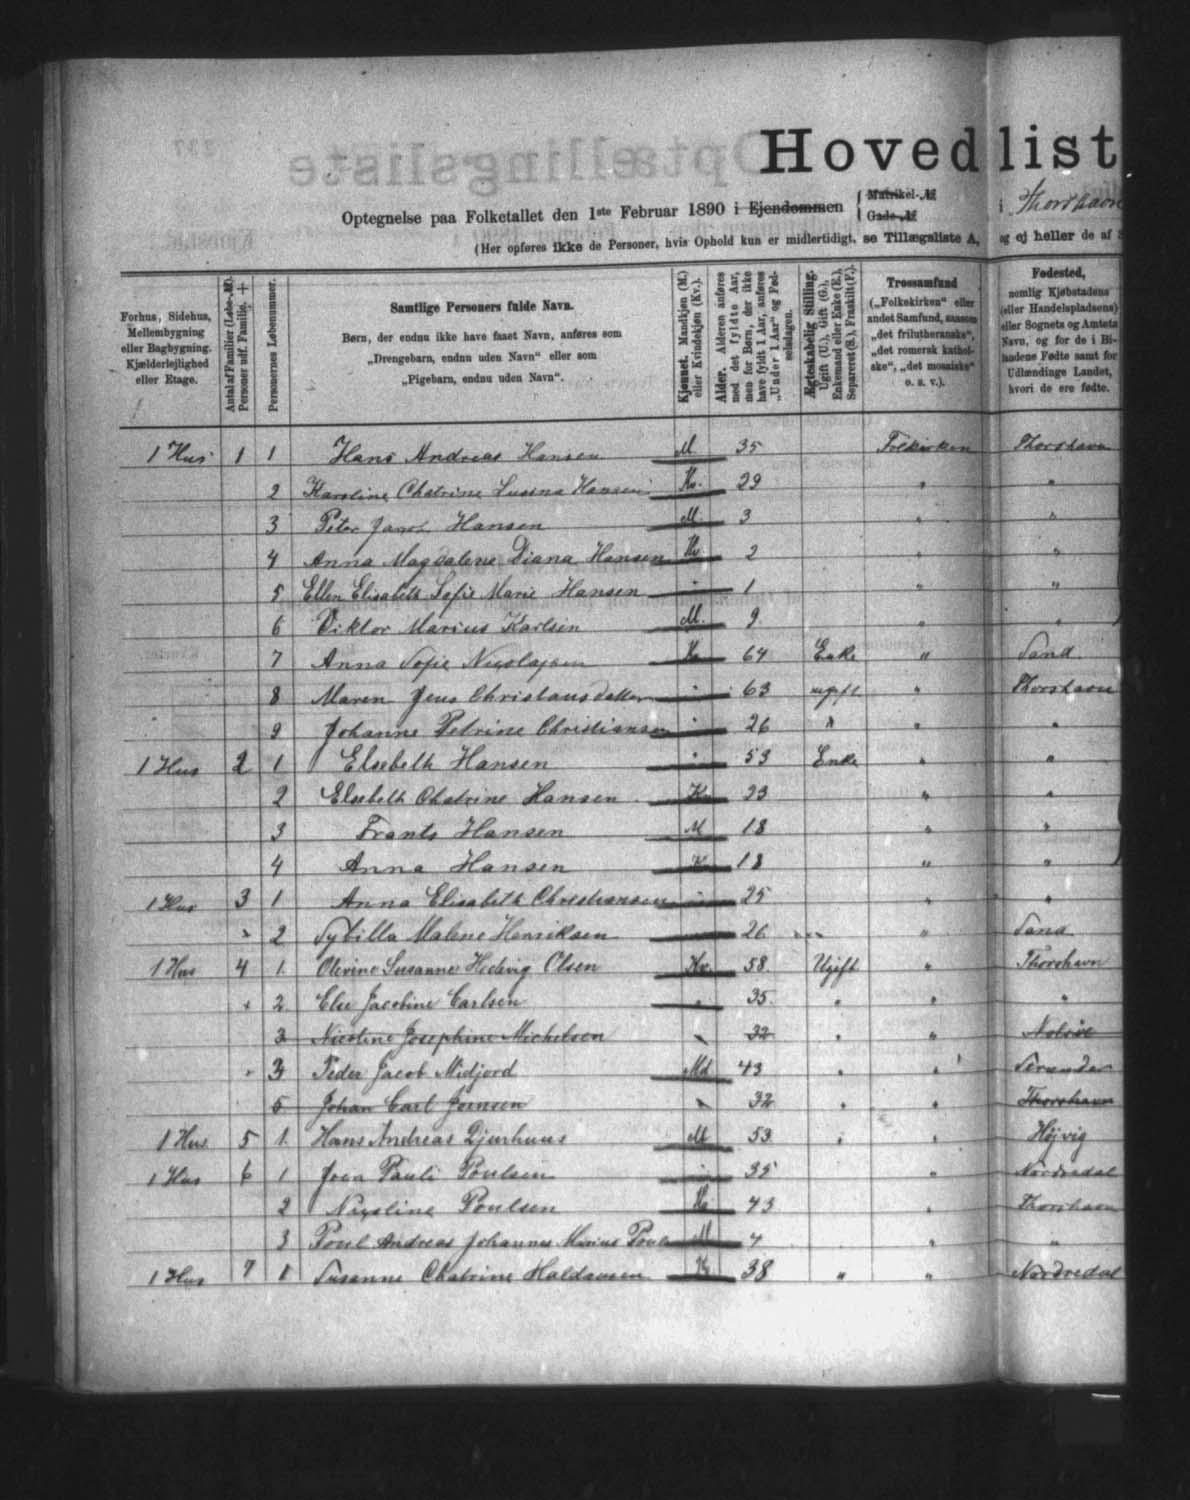 Hovedlist
Optegnelse paa Folketallet den 1ste Februar 1890 i Ejendommen { Matrikel-№ Gade-№ i Thorshavn
(Her opføres ikke de Personer, hvis Ophold kun er midlertidigt, se Tillægsliste A, og ej heller de af
Forhus, Sidehus, Mellembygning eller Bagbygning. Kjælderlejlighed eller Etage.
Antal af Familier (Løbe-№). Personer udf. Familie. +
Personernes Løbenummer.
Samtlige Personers fulde Navn.
Børn, der endnu ikke have faaet Navn, anføres som
„Drengebarn, endnu uden Navn“ eller som
„Pigebarn, endnu uden Navn“.
Kjønnet. Mandkjøn (M.) eller Kvindekjøn (Kv.).
Alder. Alderen anføres med det fyldte Aar, men for Børn, der ikke have fyldt 1 Aar, anføres „Under 1 Aar“ og Fødselsdagen.
Ægteskabelig Stilling. Ugift (U.), Gift (G.), Enkemand eller Enke (E.), Separeret (S.), Fraskilt (F.).
Trossamfund („Folkekirken“ eller andet Samfund, saasom „det frilutheranske“, „det romersk katholske“, „det mosaiske“ o. s. v.).
Fødested, nemlig Kjøbstadens (eller Handelspladsens) eller Sognets og Amtets Navn, og for de i Bilandene Fødte samt for Udlændinge Landet, hvori de ere fødte.
1 Hus 1 1 Hans Andreas Hansen M 35 Folkirken Thorshavn
2 Karoline Chatrine Susina Hansen Kv. 29 " "
3 Peter Jacob Hansen M. 3 " "
4 Anna Magdalene Diana Hansen Kv 2 " "
5 Ellen Elisabeth Sofie Marie Hansen " 1 " "
6 Viktor Marius Karlsen M. 9 " "
7 Anna Sofie Nicolajsen Kv 64 Enke " Sand
8 Maren Jens Christansdatter " 63 ugift " Thorshavn
9 Johanne Petrine Christiansen " 26 " " "
1 Hus 2 1 Elsebeth Hansen " 53 Enke " "
2 Elsebeth Chatrine Hansen Kv 23 " "
3 Frants Hansen M 18 " "
4 Anna Hansen Kv 18 " "
1 Hus 3 1 Anna Elisabeth Christiansen " 25 " "
" 2 Sybilla Malene Henriksen 26 " " Sand
1 Hus 4 1. Olevine Susanne Hedevig Olsen Kv. 58. Ugift " Thorshavn
" 2 Else Jacobine Carlsen " 35. " " "
3 Nicoline Josephine Michelsen " 32 " " Nolsöe
" 3 Peder Jacob Midjord Md 43 " "
5 Johan Carl Joensen " 32 " " Thorshavn
1 Hus 5 1. Hans Andreas Djurhuus M 53 " " Højvig
1 Hus 6 1 Joen Pauli Poulsen " 35 " Nordredal
2 Poulsen Kv 43 " Thorshavn
3 Poul Andreas Johannes Marius Pouls M 4 " "
1 Hus 7 1 Susanne Chatrine Haldansen K 38 " " Nordredal